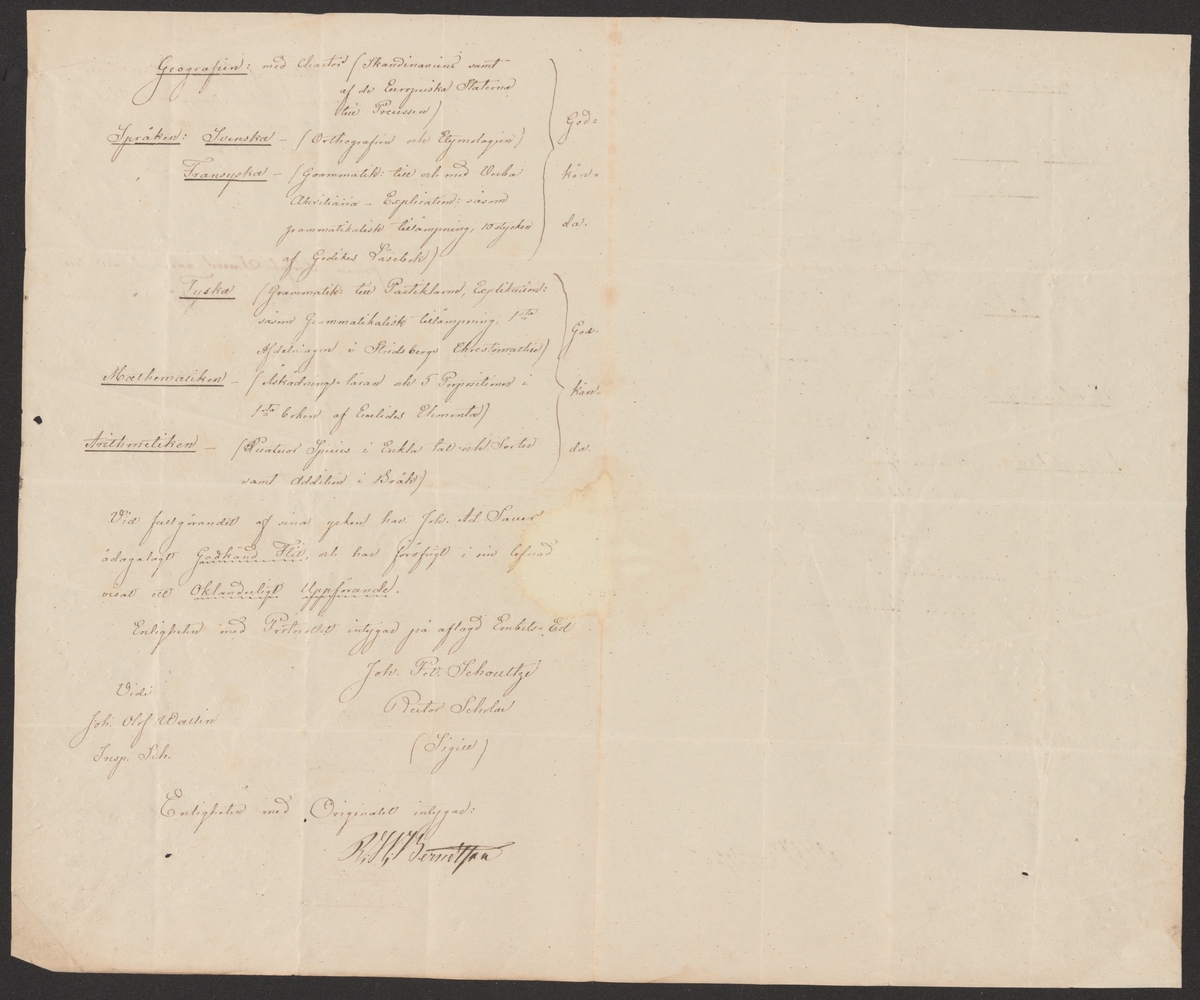 Geografien: med Chartor (Skandinaviens samt
af de Europeiska Staterna
till Preussen)
God=
Språken: Svenska – (Orthografien och Etymologien)
Fransyska – (Grammatik: till och med Verba
kän=
Auxiliaria – Explication: såsom
grammatikalisk tillämpning, 10 stycken
da.
af Gedikes Läsebok)
Tyska (Grammatik: till Partiklarne, Explikation:
såsom Grammatikalisk tillämpning, 1sta
God=
Afdelningen i Stridsbergs Chrestomathie)
Mathematiken – (Åskådnings-läran och 5 Propositioner i
kän=
1sta boken af Euclides Elementa)
Arithmetiken – (Quatuor Species i Enkla tal och Sorter
da.
samt Addition i Bråk)
Vid fullgörandet af sina yrken har Joh. Ad. Sauer
ådagalagt Godkänd Flit, och har föröfrigt i sin lefnad
visat ett Oklanderligt Uppförande.
Enligheten med Protocollet intygas på aflagd Embets-Ed
Joh. Pet. Schoultze
Vidi
Rector Scholae
Joh. Olof Wallin
(Sigill)
Insp. Sch.
Enligheten med Originalet intygar: